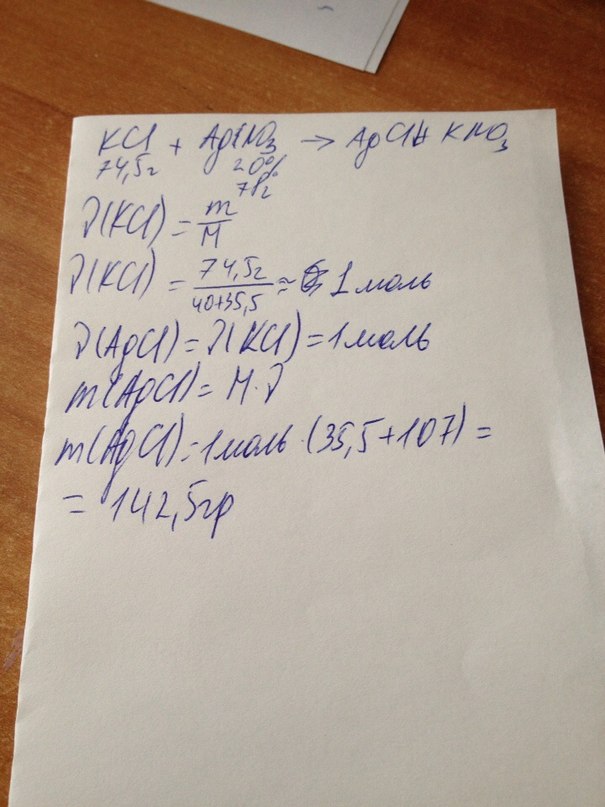 KCl + AgNO₃ → AgCl + KNO₃
74,5г 20%
78г
ν(KCl) = m/M
ν(KCl) = 74,5г/40+35,5 ≈ 1 моль
ν(AgCl) = ν(KCl) = 1 моль
m(AgCl) = M·ν
m(AgCl) = 1 моль · (35,5 + 107) =
= 142,5 гр